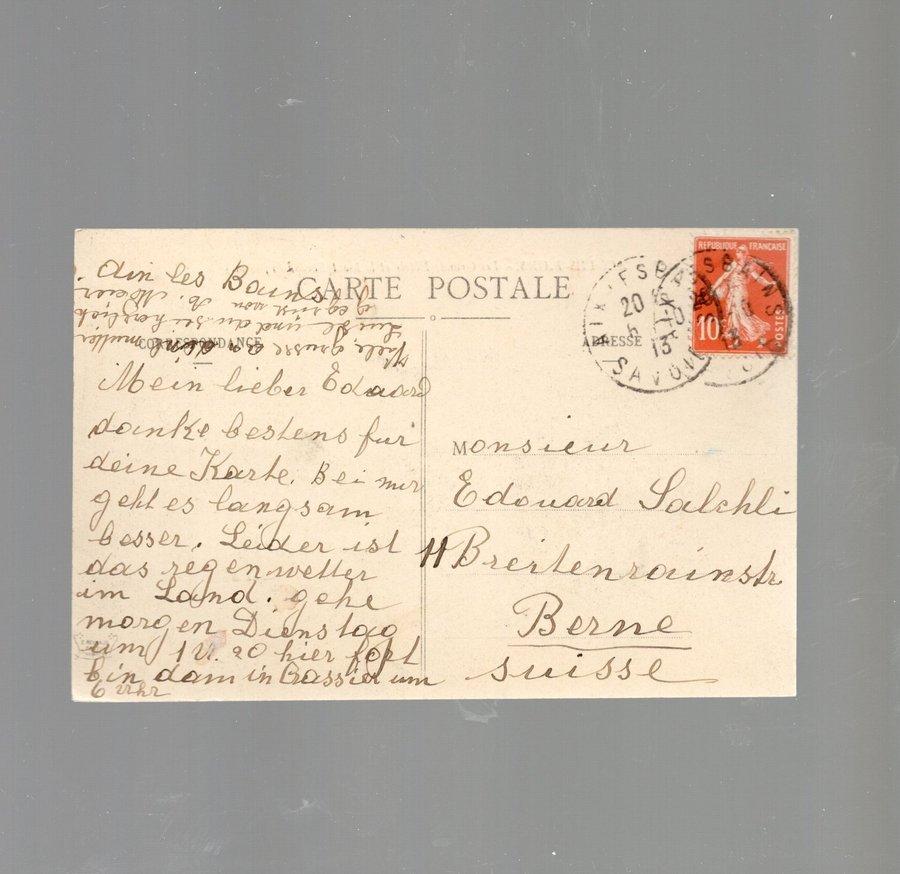 Aix les Bains
CARTE POSTALE
CORRESPONDANCE
ADRESSE
RÉPUBLIQUE FRANÇAISE
10
POSTES
AIX-LES-BAINS
20
6-10
13
SAVOIE
Mein lieber Edouard
danke bestens für
deine Karte. Bei mir
geht es langsam
besser. Leider ist
das regenwetter
im Land. gehe
morgen Dienstag
um 1 U. 20 hier fort
bin dann in Gassier um
6 Uhr
Monsieur
Edouard Salchli
11 Breitenrainstr.
Berne
Suisse
mutter
Luise und du sei herzlich
gegrüsst von A. Meier